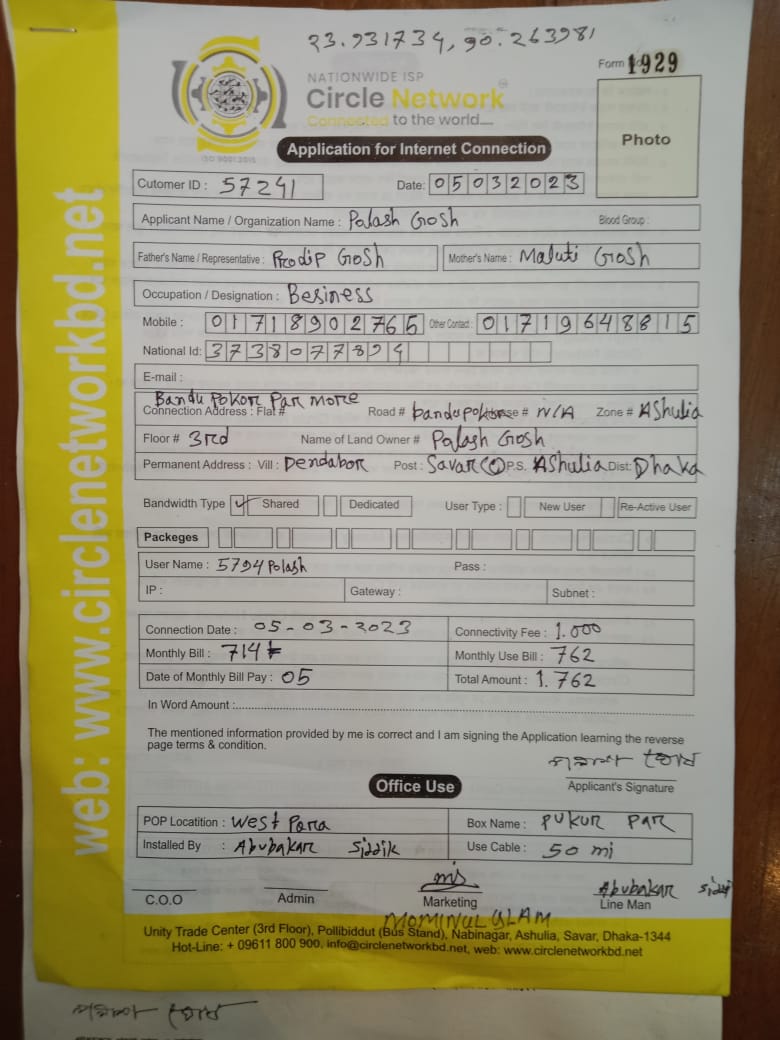 23.931734, 90.263981
NATIONWIDE ISP
Circle Network
Connected to the world....
ISO 9001:2015
Form No. 1929
Photo
Application for Internet Connection
Cutomer ID : 57241 Date: 05032023
Applicant Name / Organization Name : Palash Gosh Blood Group :
Father's Name / Representative : Prodip Gosh Mother's Name : Maluti Gosh
Occupation / Designation : Besiness
Mobile : 01718902765 Other Contact : 01719648815
National Id: 3738077894
E-mail :
Bandu Pokor Par more
Connection Address : Flat # Road # bandupokor House # N/A Zone # Ashulia
Floor # 3rd Name of Land Owner # Palash Gosh
Permanent Address : Vill : Dendabor Post : Savar P.S. Ashulia Dist: Dhaka
Bandwidth Type Shared Dedicated User Type : New User Re-Active User
Packeges
User Name : 5794 Polash Pass :
IP : Gateway : Subnet :
Connection Date : 05-03-2023 Connectivity Fee : 1.000
Monthly Bill : 714 Monthly Use Bill : 762
Date of Monthly Bill Pay : 05 Total Amount : 1.762
In Word Amount :
The mentioned information provided by me is correct and I am signing the Application learning the reverse
page terms & condition.
পলাশ ঘোষ
Applicant's Signature
Office Use
POP Locatition : West Para Box Name : PUKUR PAR
Installed By : Abubakar Siddik Use Cable : 50 mi
C.O.O Admin Marketing Abubakar Siddi
Line Man
MOMINUL ISLAM
Unity Trade Center (3rd Floor), Pollibiddut (Bus Stand), Nabinagar, Ashulia, Savar, Dhaka-1344
Hot-Line: + 09611 800 900, info@circlenetworkbd.net, web: www.circlenetworkbd.net
web: www.circlenetworkbd.net
পলাশ ঘোষ